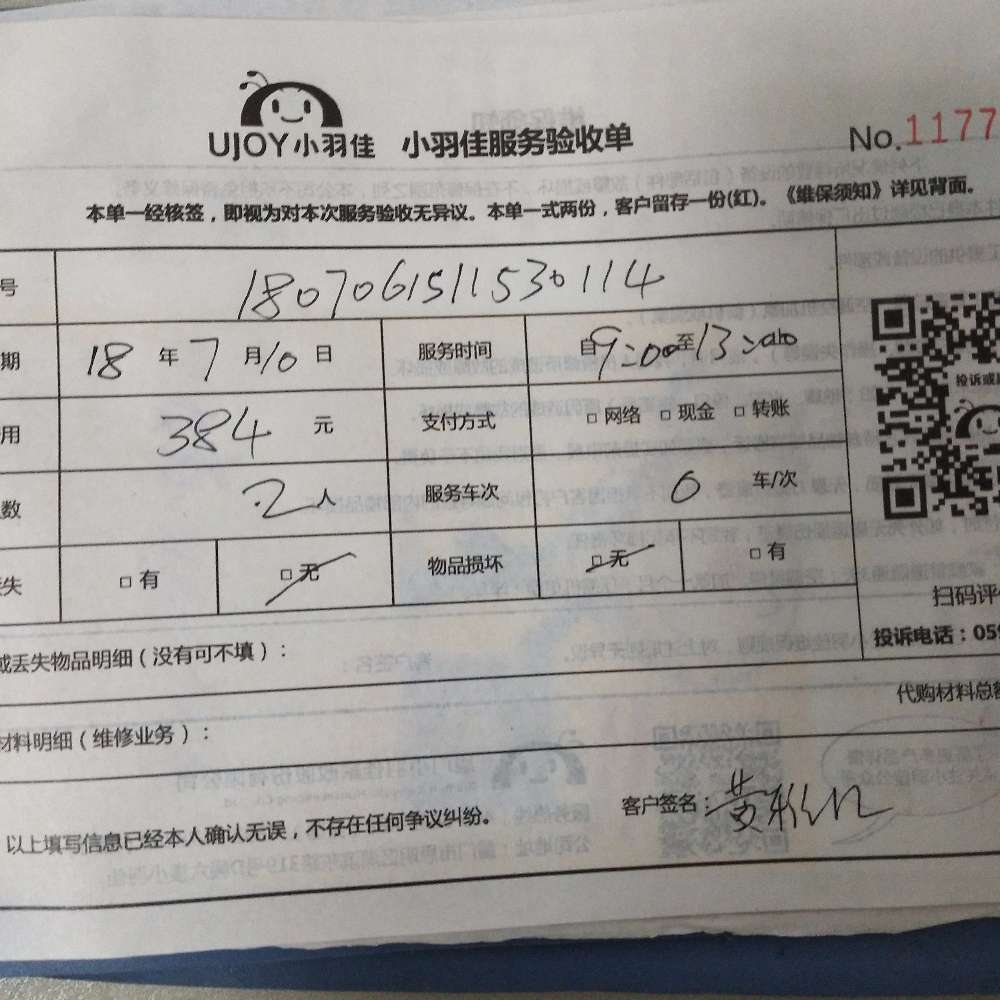 UJOY小羽佳 小羽佳服务验收单 No.1177
本单一经核签，即视为对本次服务验收无异议。本单一式两份，客户留存一份(红)。《维保须知》详见背面。
号 1807061511530114
期 18 年 7 月 10 日 服务时间 自 9:00 至 13:00
用 384 元 支付方式 □ 网络 □ 现金 □ 转账
数 2 人 服务车次 0 车/次
失 □ 有 □ 无 物品损坏 □ 无 □ 有
投诉或
扫码评
投诉电话：059
或丢失物品明细（没有可不填）：
代购材料总
材料明细（维修业务）：
以上填写信息已经本人确认无误，不存在任何争议纠纷。 客户签名：黄